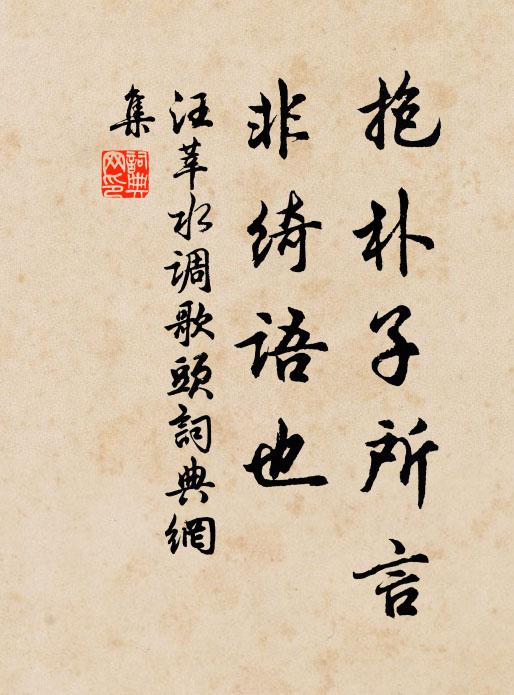 抱朴子所言
非绮语也
汪莘水调歌頭詞典網
集
詞典網印